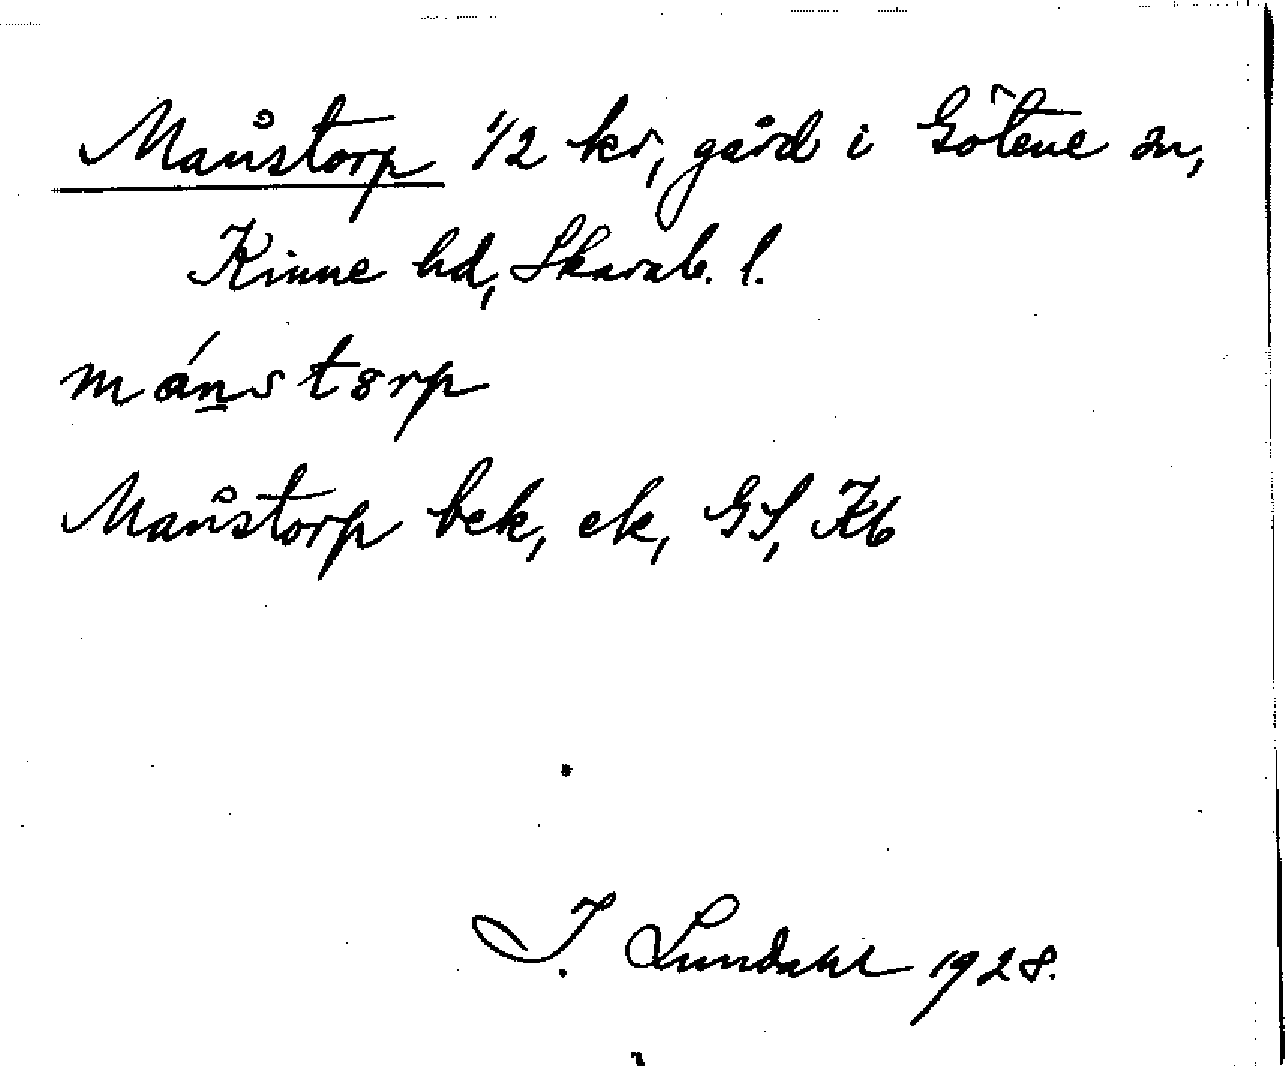 Månstorp 1/2 kr, gård i Götene sn,
Kinne hd, Skarab. l.
máns tørp
Månstorp bek, ek, GS, Kb
I. Lundahl 1928.